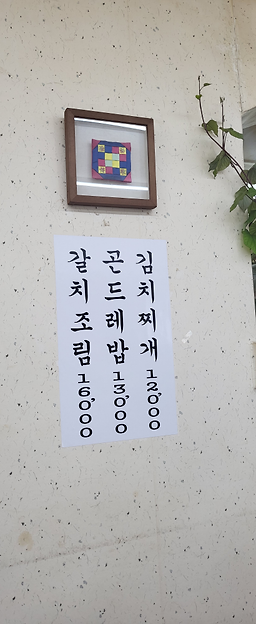 김치찌개 12,000
곤드레밥 13,000
갈치조림 16,000